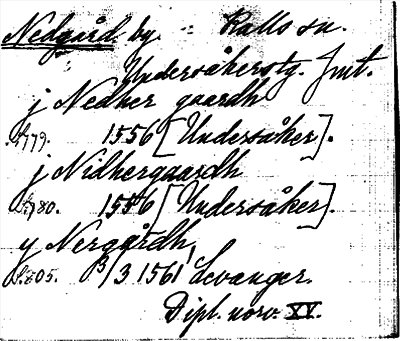 Nedgård by. Kalls sn.
Undersåkerstg. Jmt.
j Nedher gaardh
s. 779. 1556 [Undersåker].
j Nidhergaardh
s. 780. 1556 [Undersåker].
y Nergårdh,
s. 805. 3/3 1561 Levanger.
Dipl. norv. XV.